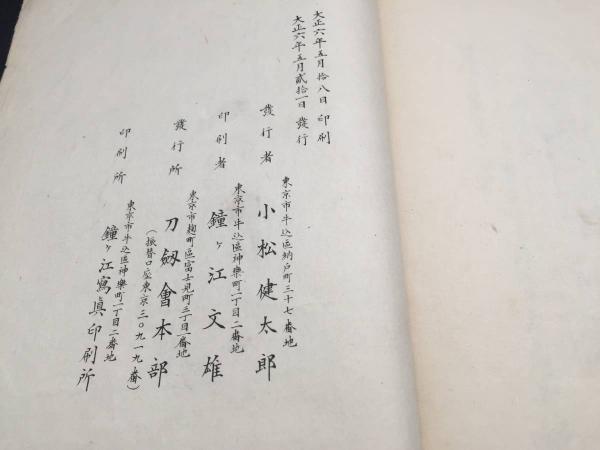 大正六年五月拾八日 印刷
大正六年五月貳拾一日 發行
東京市牛込區納戸町三十七番地
發行者 小松健太郎
東京市牛込區神樂町一丁目二番地
印刷者 鐘ヶ江文雄
東京市麹町區富士見町三丁目一番地
發行所 刀劔會本部
(振替口座東京三〇九一九番)
東京市牛込區神樂町一丁目二番地
印刷所 鐘ヶ江寫眞印刷所